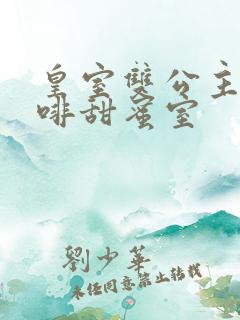 皇室雙公主
啡甜蜜室
劉少華
未經同意禁止轉載